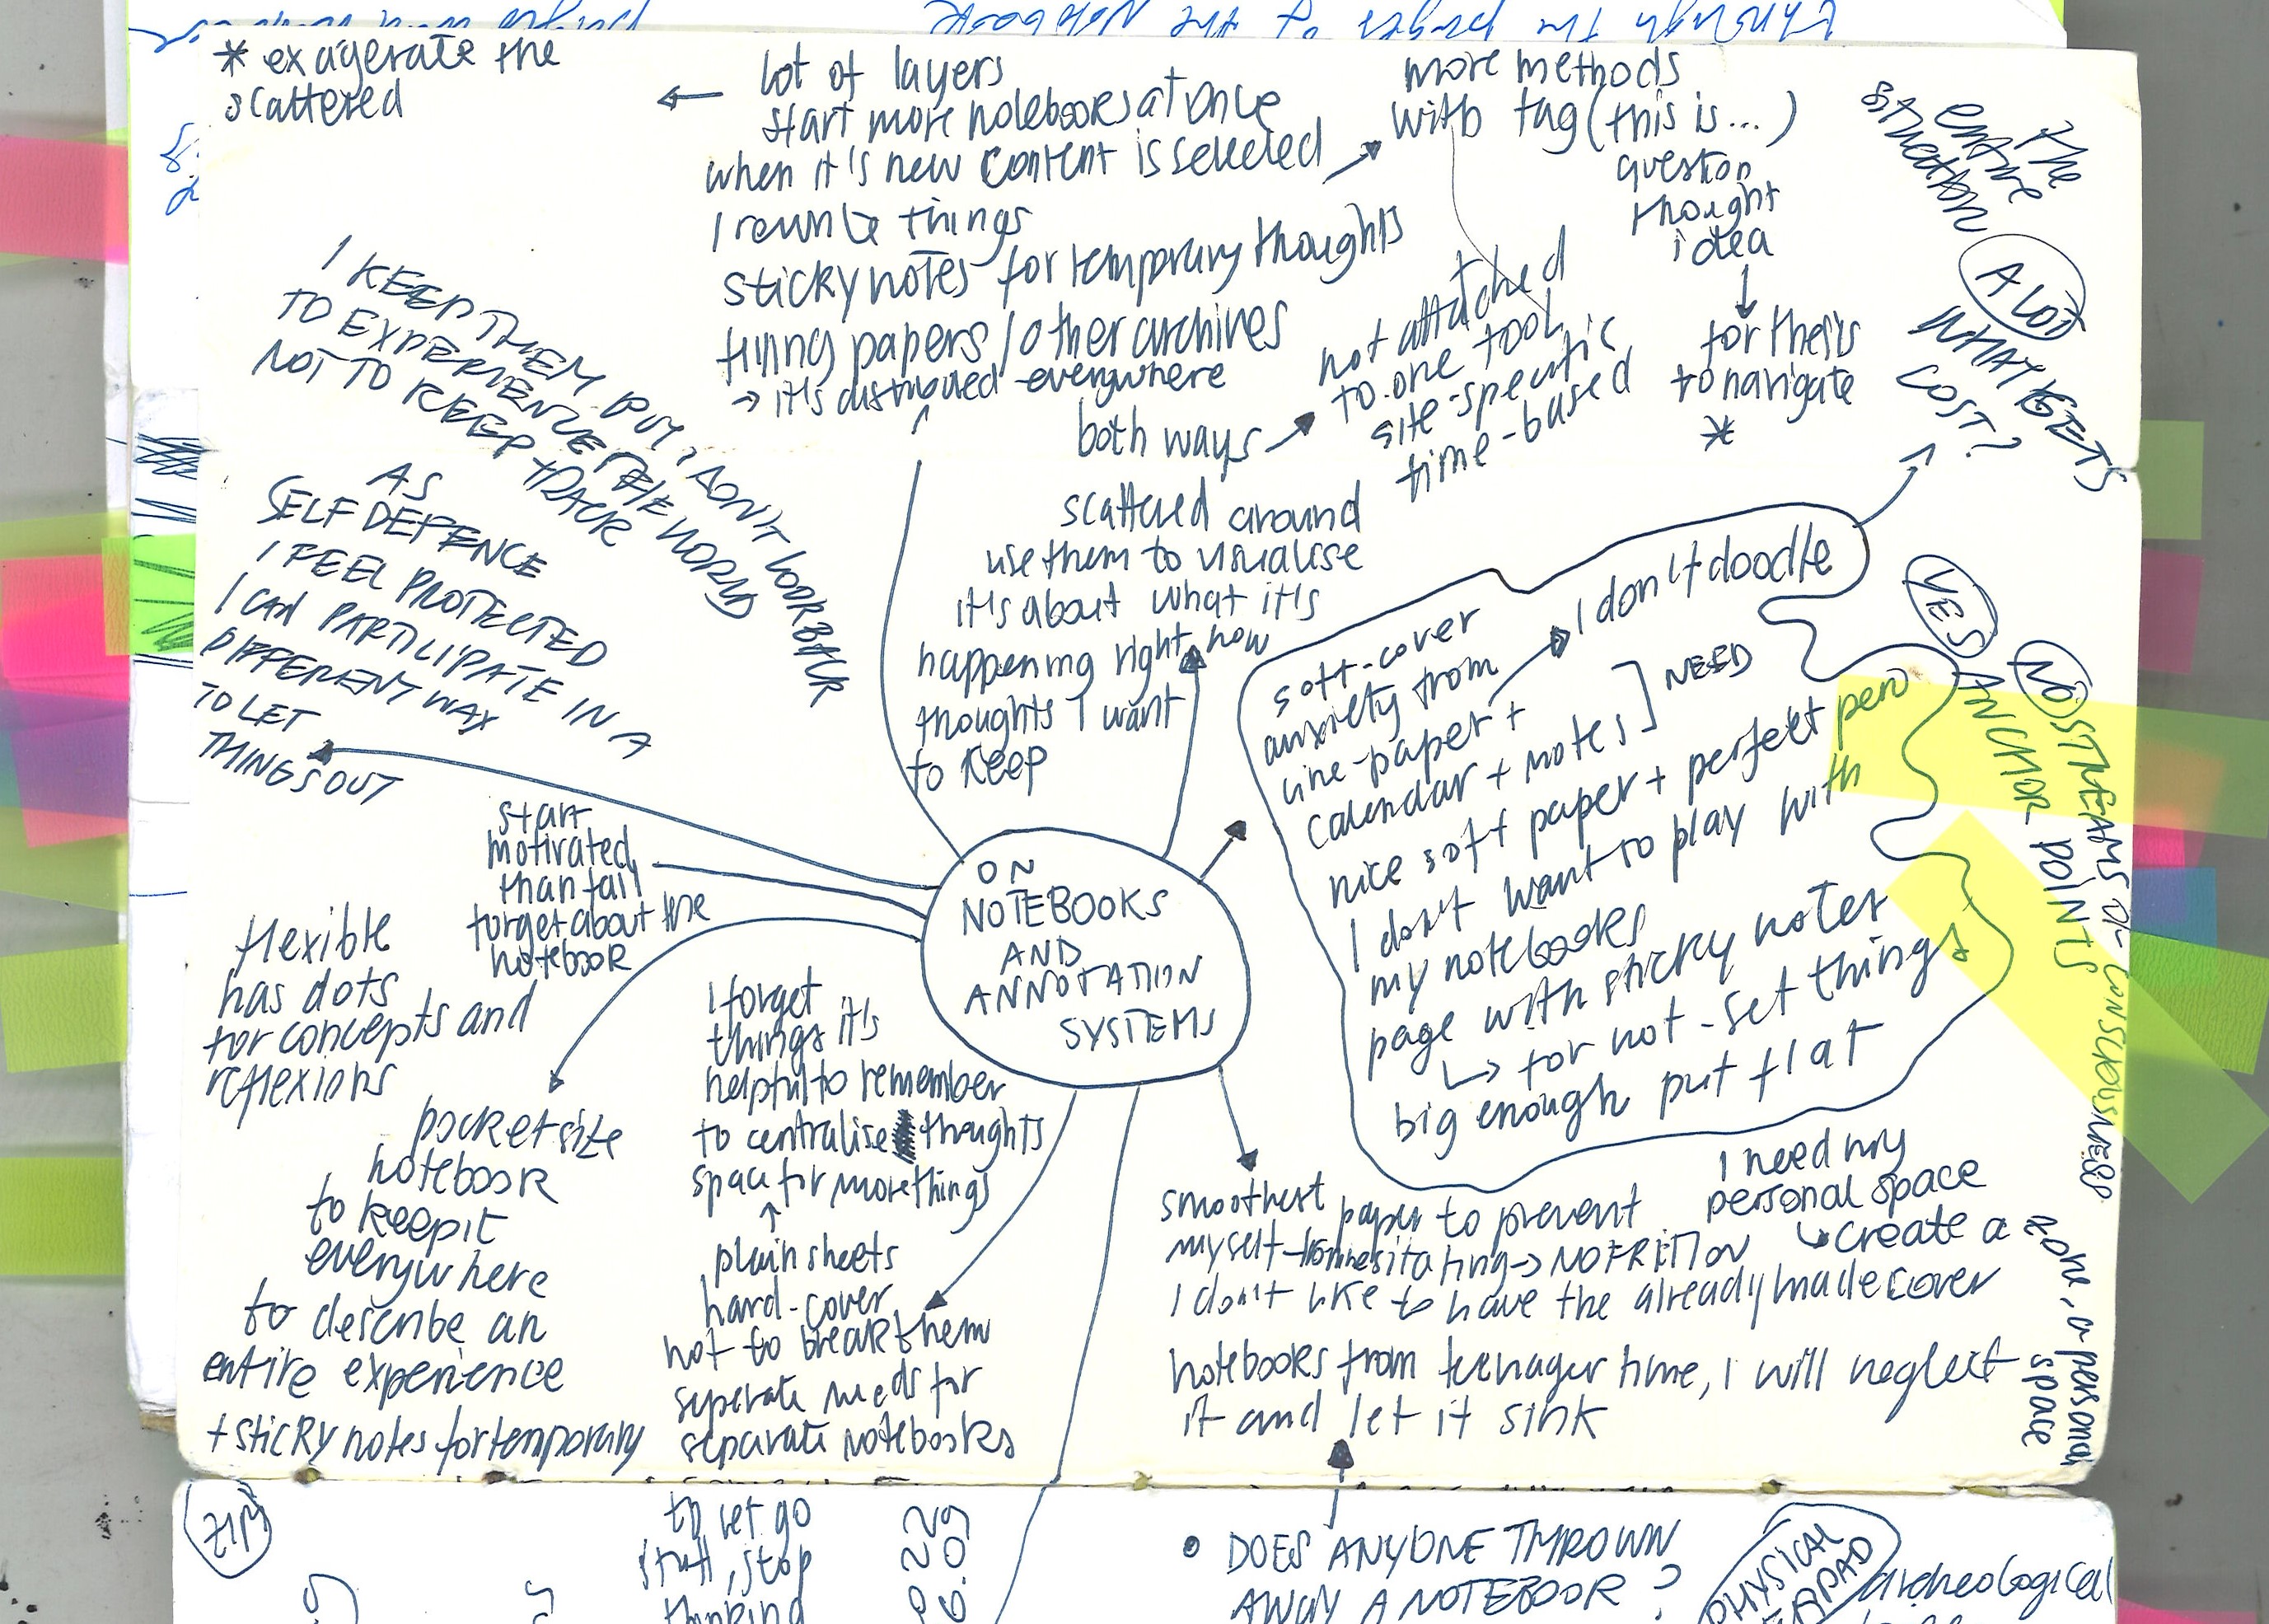 * exagerate the
scattered
← lot of layers
start more notebooks at once
when it's new content is selected
I rewrite things
sticky notes for temporary thoughts
papers / other archives
→ it's distributed everywhere
more methods
with tag (this is...)
question
thought
idea
for thesis
to navigate
*
both ways
not attached
to one tool
site-specific
time-based
The
entire
situation
A LOT
WHAT GETS
COST?
I KEEP THEM BUT I DON'T LOOK BACK
TO EXPERIENCE THE WORLD
NOT TO KEEP TRACK
AS
SELF DEFENCE
I FEEL PROTECTED
I CAN PARTICIPATE IN A
DIFFERENT WAY
TO LET
THINGS OUT
scattered around
use them to visualise
it's about what it's
happening right now
thoughts I want
to keep
I don't doodle
soft-cover
anxiety from
line-paper +
calendar + notes] NEED
nice soft paper + perfekt pen
I don't want to play with
my notebooks
page with sticky notes
↳ for not-set things
big enough put flat
YES
ANCHOR POINTS
NO STREAMS OF CONSCIOUSNESS
start
motivated
than fail
forget about the
notebook
ON
NOTEBOOKS
AND
ANNOTATION
SYSTEMS
flexible
has dots
for concepts and
reflexions
pocket size
notebook
to keep it
everywhere
to describe an
entire experience
+ sticky notes for temporary
I forget
things it's
helpful to remember
to centralise thoughts
space for more things
↑
plain sheets
hard-cover
not to break them
seperate needs for
separate notebooks
smoothest paper to prevent
myself from hesitating → NO FRITION
I don't like to have the already made cover
I need my
personal space
↳ create a
zone, a personal
space
notebooks from teenager time, I will neglect
it and let it sink
to let go
stuff, stop
thinking
• DOES ANYONE THROWN
AWAY A NOTEBOOK ?
PHYSICAL
archeological